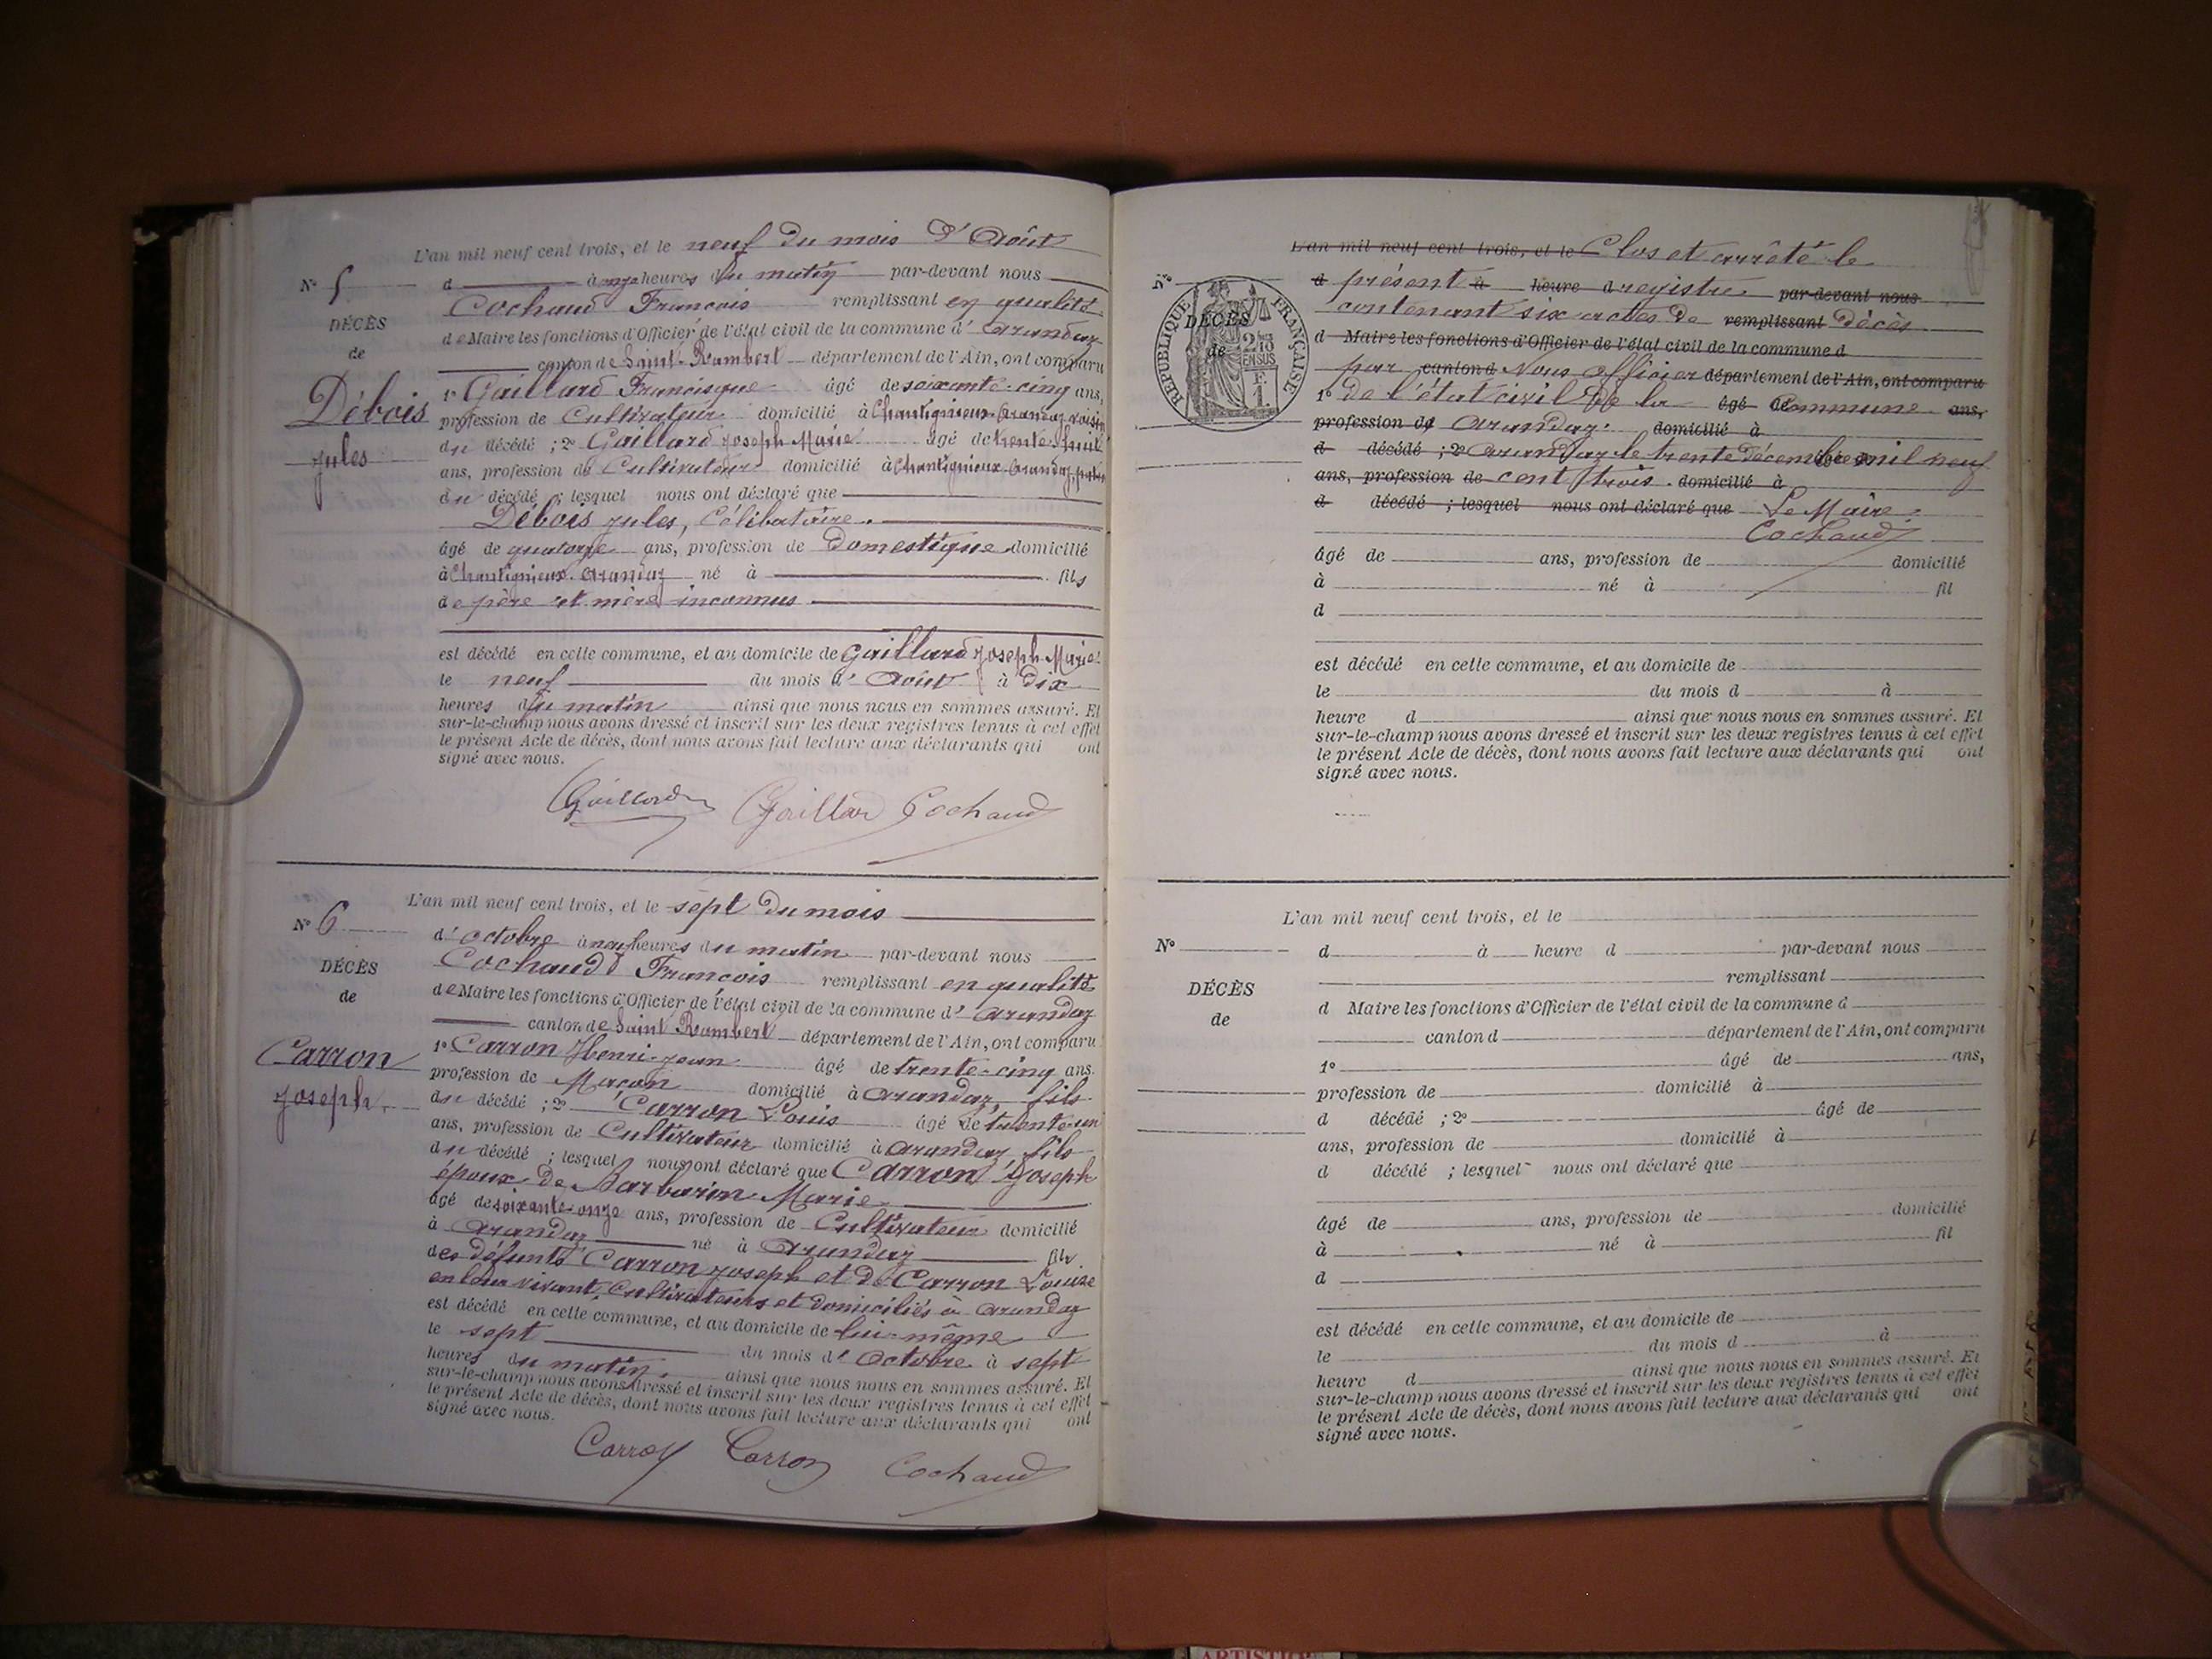 L'an mil neuf cent trois, et le neuf du mois d'Août
N° 5
d à onze heures du matin par-devant nous
Cochaud François remplissant en qualité
DÉCÈS
de Maire les fonctions d'Officier de l'état civil de la commune d'Arandaz
de
canton de Saint-Rambert département de l'Ain, ont comparu
1° Gaillard Francisque âgé de soixante-cinq ans,
Débois
profession de Cultivateur domicilié à Chantignieux-Arandaz, voisin
du décédé ; 2° Gaillard Joseph Marie âgé de trente-huit
Jules
ans, profession de Cultivateur domicilié à Chantignieux-Arandaz,
du décédé ; lesquel nous ont déclaré que
Débois Jules, Célibataire.
âgé de quatorze ans, profession de Domestique domicilié
à Chantignieux-Arandaz né à fils
de père et mère inconnus
est décédé en cette commune, et au domicile de Gaillard Joseph-Marie
le neuf du mois d'Août à dix
heures du matin ainsi que nous nous en sommes assuré. Et
sur-le-champ nous avons dressé et inscrit sur les deux registres tenus à cet effet
le présent Acte de décès, dont nous avons fait lecture aux déclarants qui ont
signé avec nous.
Gaillard Gaillard Cochaud
L'an mil neuf cent trois, et le sept du mois
N° 6
d'octobre à neuf heures du matin par-devant nous
Cochaud François remplissant en qualité
DÉCÈS
de Maire les fonctions d'Officier de l'état civil de la commune d'Arandaz
de
canton de Saint Rambert département de l'Ain, ont comparu
Carron
1° Carron Henri-Jean âgé de trente-cinq ans.
profession de Maçon domicilié à Arandaz, fils
Joseph.
du décédé ; 2° Carron Louis âgé de trente-un
ans, profession de Cultivateur domicilié à Arandaz fils
du décédé ; lesquel nous ont déclaré que Carron Joseph
époux de Barbarin Marie
âgé de soixante-onze ans, profession de Cultivateur domicilié
à Arandaz né à Arandaz fils
des défunts Carron Joseph et de Carron Louise
en leur vivant, Cultivateurs et domiciliés à Arandaz
est décédé en cette commune, et au domicile de lui-même
le sept du mois d'Octobre à sept
heures du matin. ainsi que nous nous en sommes assuré. Et
sur-le-champ nous avons dressé et inscrit sur les deux registres tenus à cet effet
le présent Acte de décès, dont nous avons fait lecture aux déclarants qui ont
signé avec nous.
Carron Carron Cochaud
L'an mil neuf cent trois, et le Clos et arrêté le
N°
d présent à heure d registre par-devant nous
contenant six actes de remplissant Décès
RÉPUBLIQUE FRANÇAISE
2/10 EN SUS
F. 1.
DÉCÈS
de
d Maire les fonctions d'Officier de l'état civil de la commune d
par canton d Nous officier département de l'Ain, ont comparu
1° de l'état civil de la âgé de commune ans,
profession d'Arandaz. domicilié à
d décédé ; 2° Arandaz le trente Décembre mil neuf
ans, profession de cent trois. domicilié à
d décédé ; lesquel nous ont déclaré que Le Maire
Cochaud
âgé de ans, profession de domicilié
à né à fil
d
est décédé en cette commune, et au domicile de
le du mois d à
heure d ainsi que nous nous en sommes assuré. Et
sur-le-champ nous avons dressé et inscrit sur les deux registres tenus à cet effet
le présent Acte de décès, dont nous avons fait lecture aux déclarants qui ont
signé avec nous.
L'an mil neuf cent trois, et le
N°
d à heure d par-devant nous
remplissant
DÉCÈS
d Maire les fonctions d'Officier de l'état civil de la commune d
de
canton d département de l'Ain, ont comparu
1° âgé de ans,
profession de domicilié à
d décédé ; 2° âgé de
ans, profession de domicilié à
d décédé ; lesquel nous ont déclaré que
âgé de ans, profession de domicilié
à né à fil
d
est décédé en cette commune, et au domicile de
le du mois d à
heure d ainsi que nous nous en sommes assuré. Et
sur-le-champ nous avons dressé et inscrit sur les deux registres tenus à cet effet
le présent Acte de décès, dont nous avons fait lecture aux déclarants qui ont
signé avec nous.